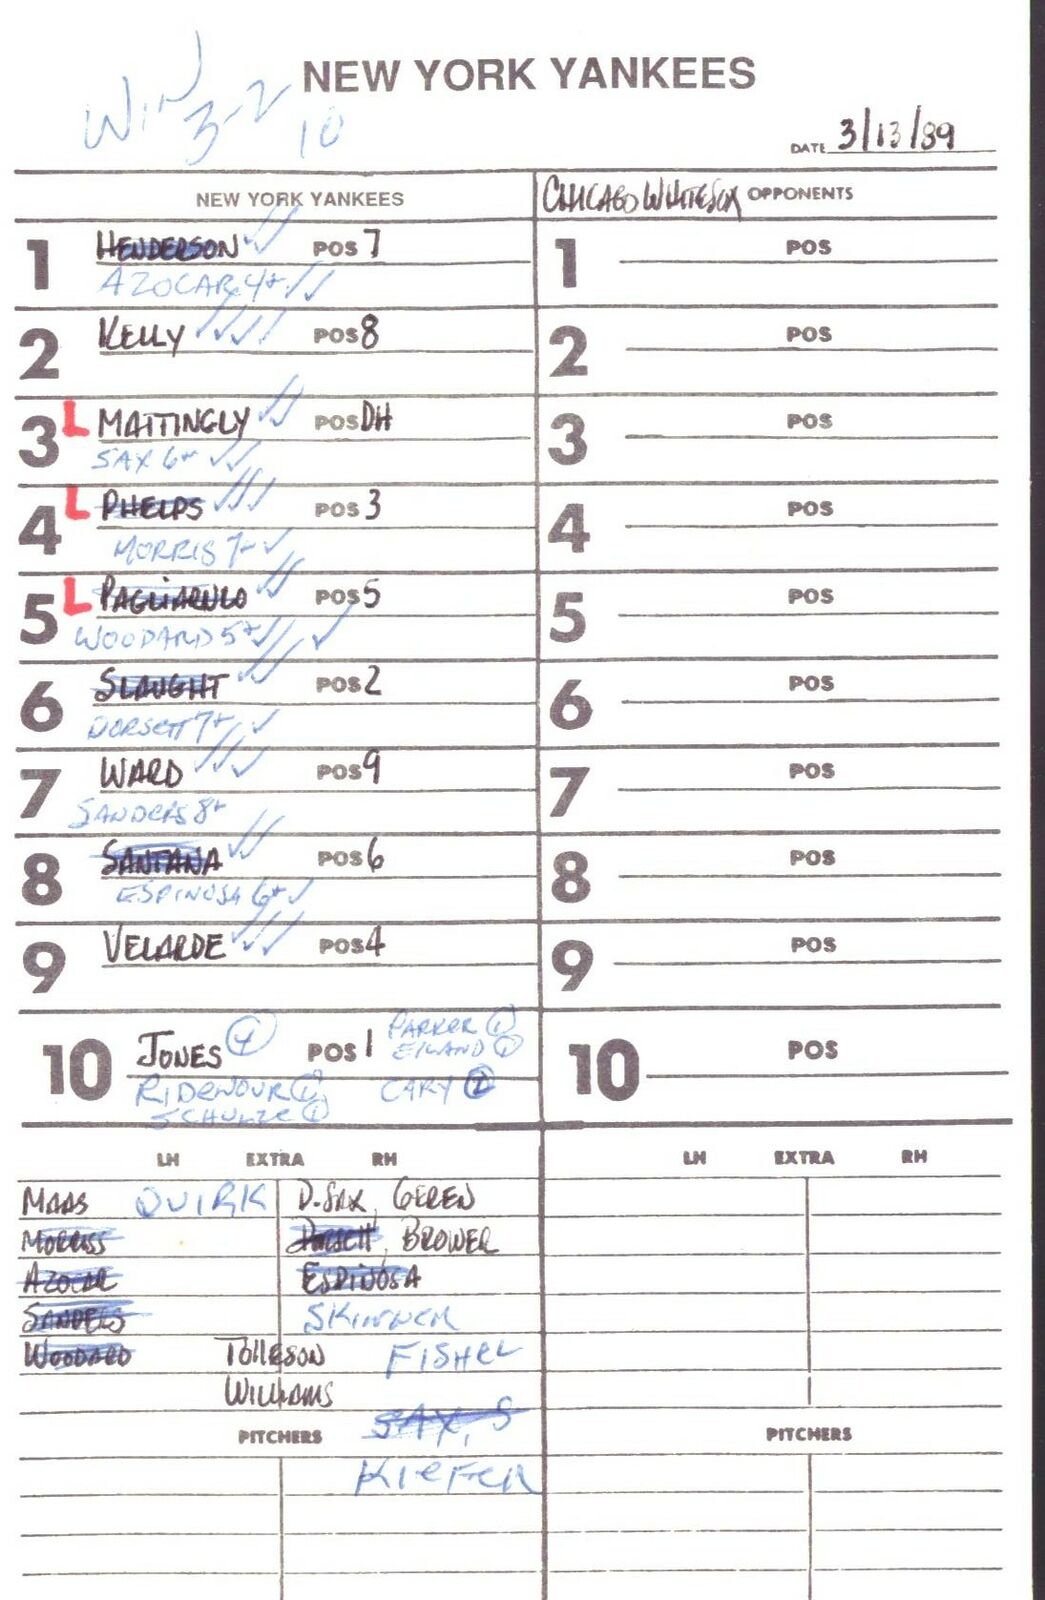 WIN
3-2
10
NEW YORK YANKEES
DATE 3/13/89
NEW YORK YANKEES
CHICAGO WHITESOX OPPONENTS
1 HENDERSON ✓✓ POS 7
AZOCAR 4+ ✓✓
2 KELLY ✓✓✓✓ POS 8
3 L MATTINGLY ✓✓ POS DH
SAX 6+ ✓✓
4 L PHELPS ✓✓✓ POS 3
MORRIS 7+ ✓
5 L PAGLIARULO ✓✓ POS 5
WOODARD 5+ ✓✓ ✓
6 SLAUGHT ✓✓ POS 2
DORSETT 7+ ✓
7 WARD ✓✓✓ POS 9
SANDERS 8+
8 SANTANA ✓✓ POS 6
ESPINOSA 6+ ✓
9 VELARDE ✓✓✓ POS 4
10 JONES 4 POS 1
RIDENOUR 1
SCHULZE 1
PARKER 1
EILAND 1
CARY 2
1 POS
2 POS
3 POS
4 POS
5 POS
6 POS
7 POS
8 POS
9 POS
10 POS
LH EXTRA RH
MAAS QUIRK D.SAX, GEREN
MORRISS DORSETT, BROWER
AZOCAR ESPINOSA
SANDERS SKINNER
WOODARD TOLLESON FISHEL
WILLIAMS
SAX, S
PITCHERS
KIEFER
LH EXTRA RH
PITCHERS